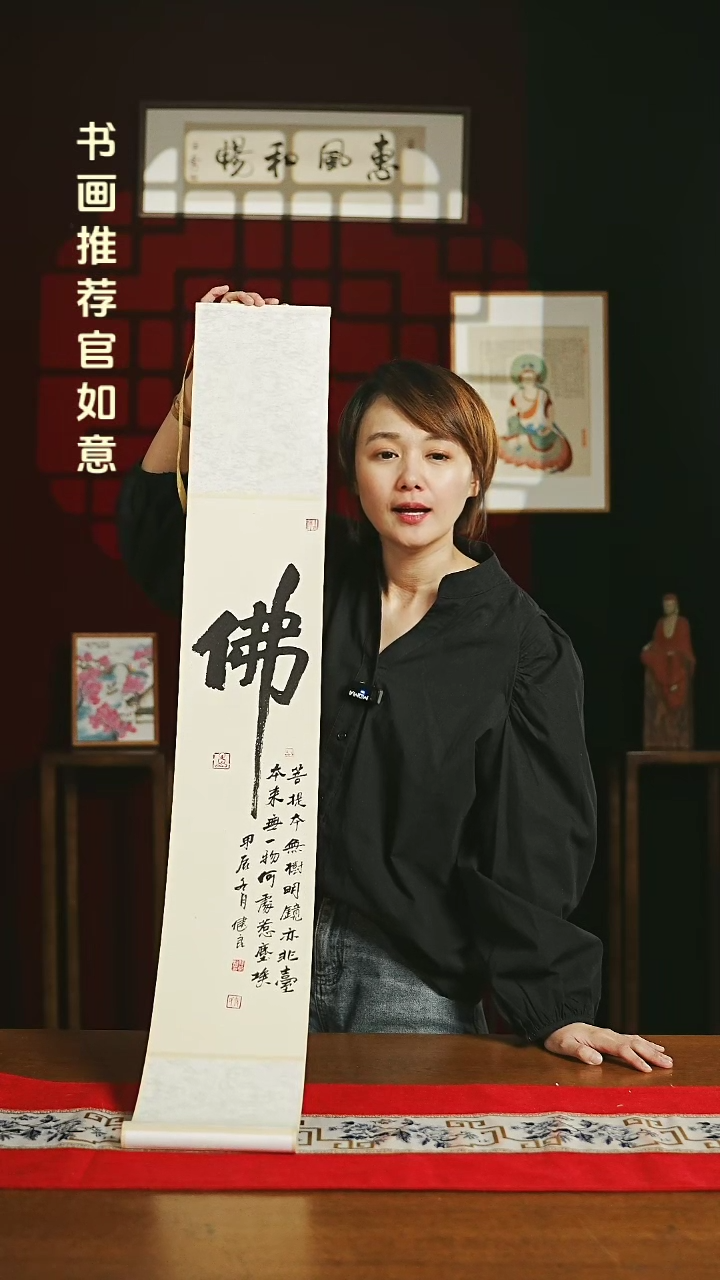 书画推荐官如意
惠風和暢
佛
菩提本無樹明鏡亦非臺
本来無一物何處惹塵埃
甲辰冬月健良